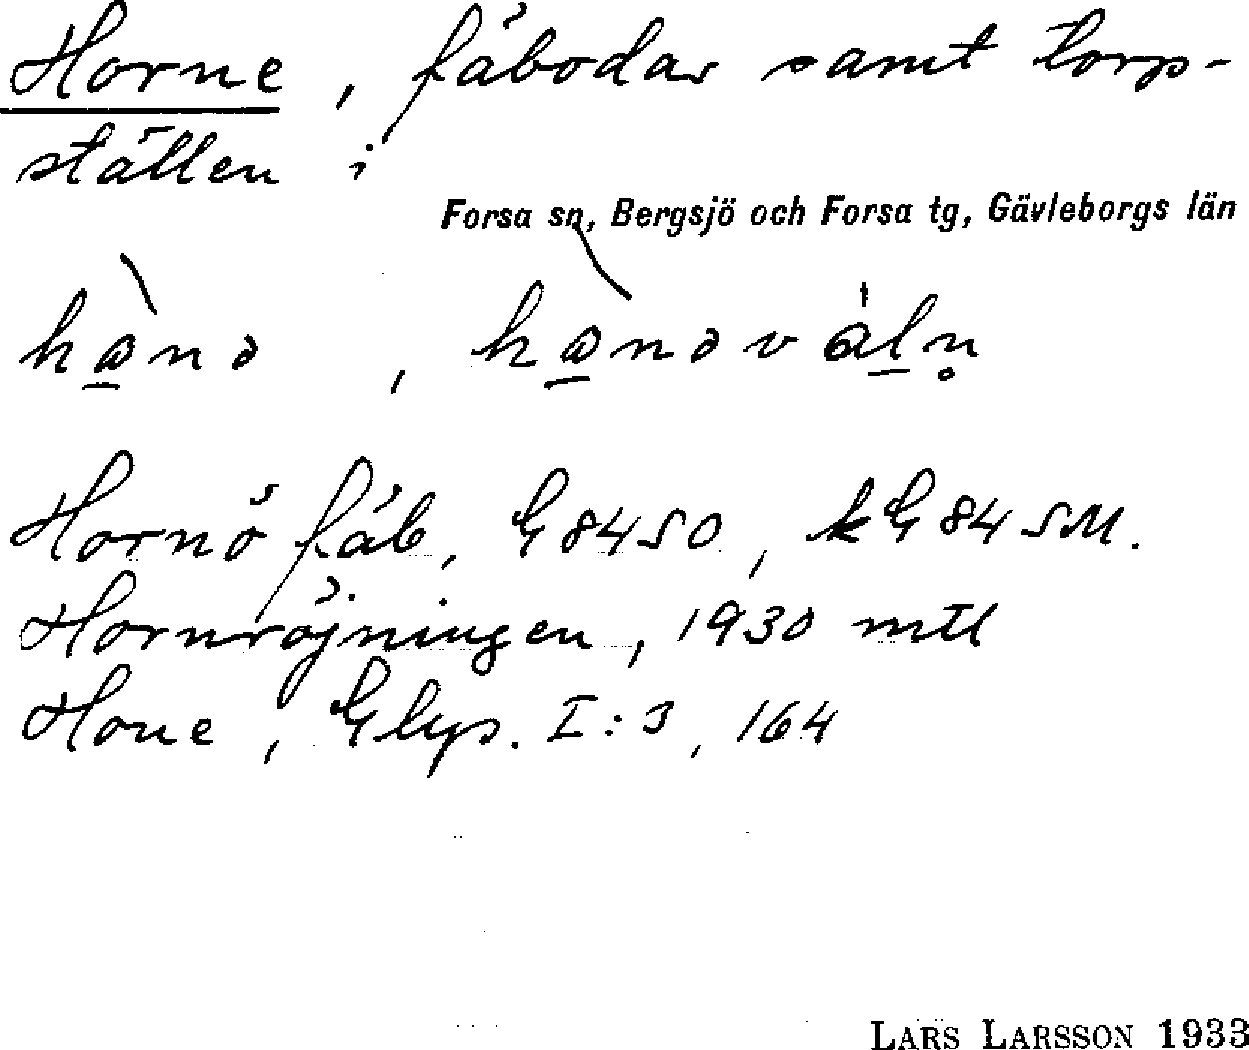 Horne, fäbodar samt torp-
ställen i
Forsa sn, Bergsjö och Forsa tg, Gävleborgs län
Hornö fäb, G 84 SO, kG 84 SM.
Hornröjningen, 1930 mtl
Hone, Glys. I:3, 164
LARS LARSSON 1933